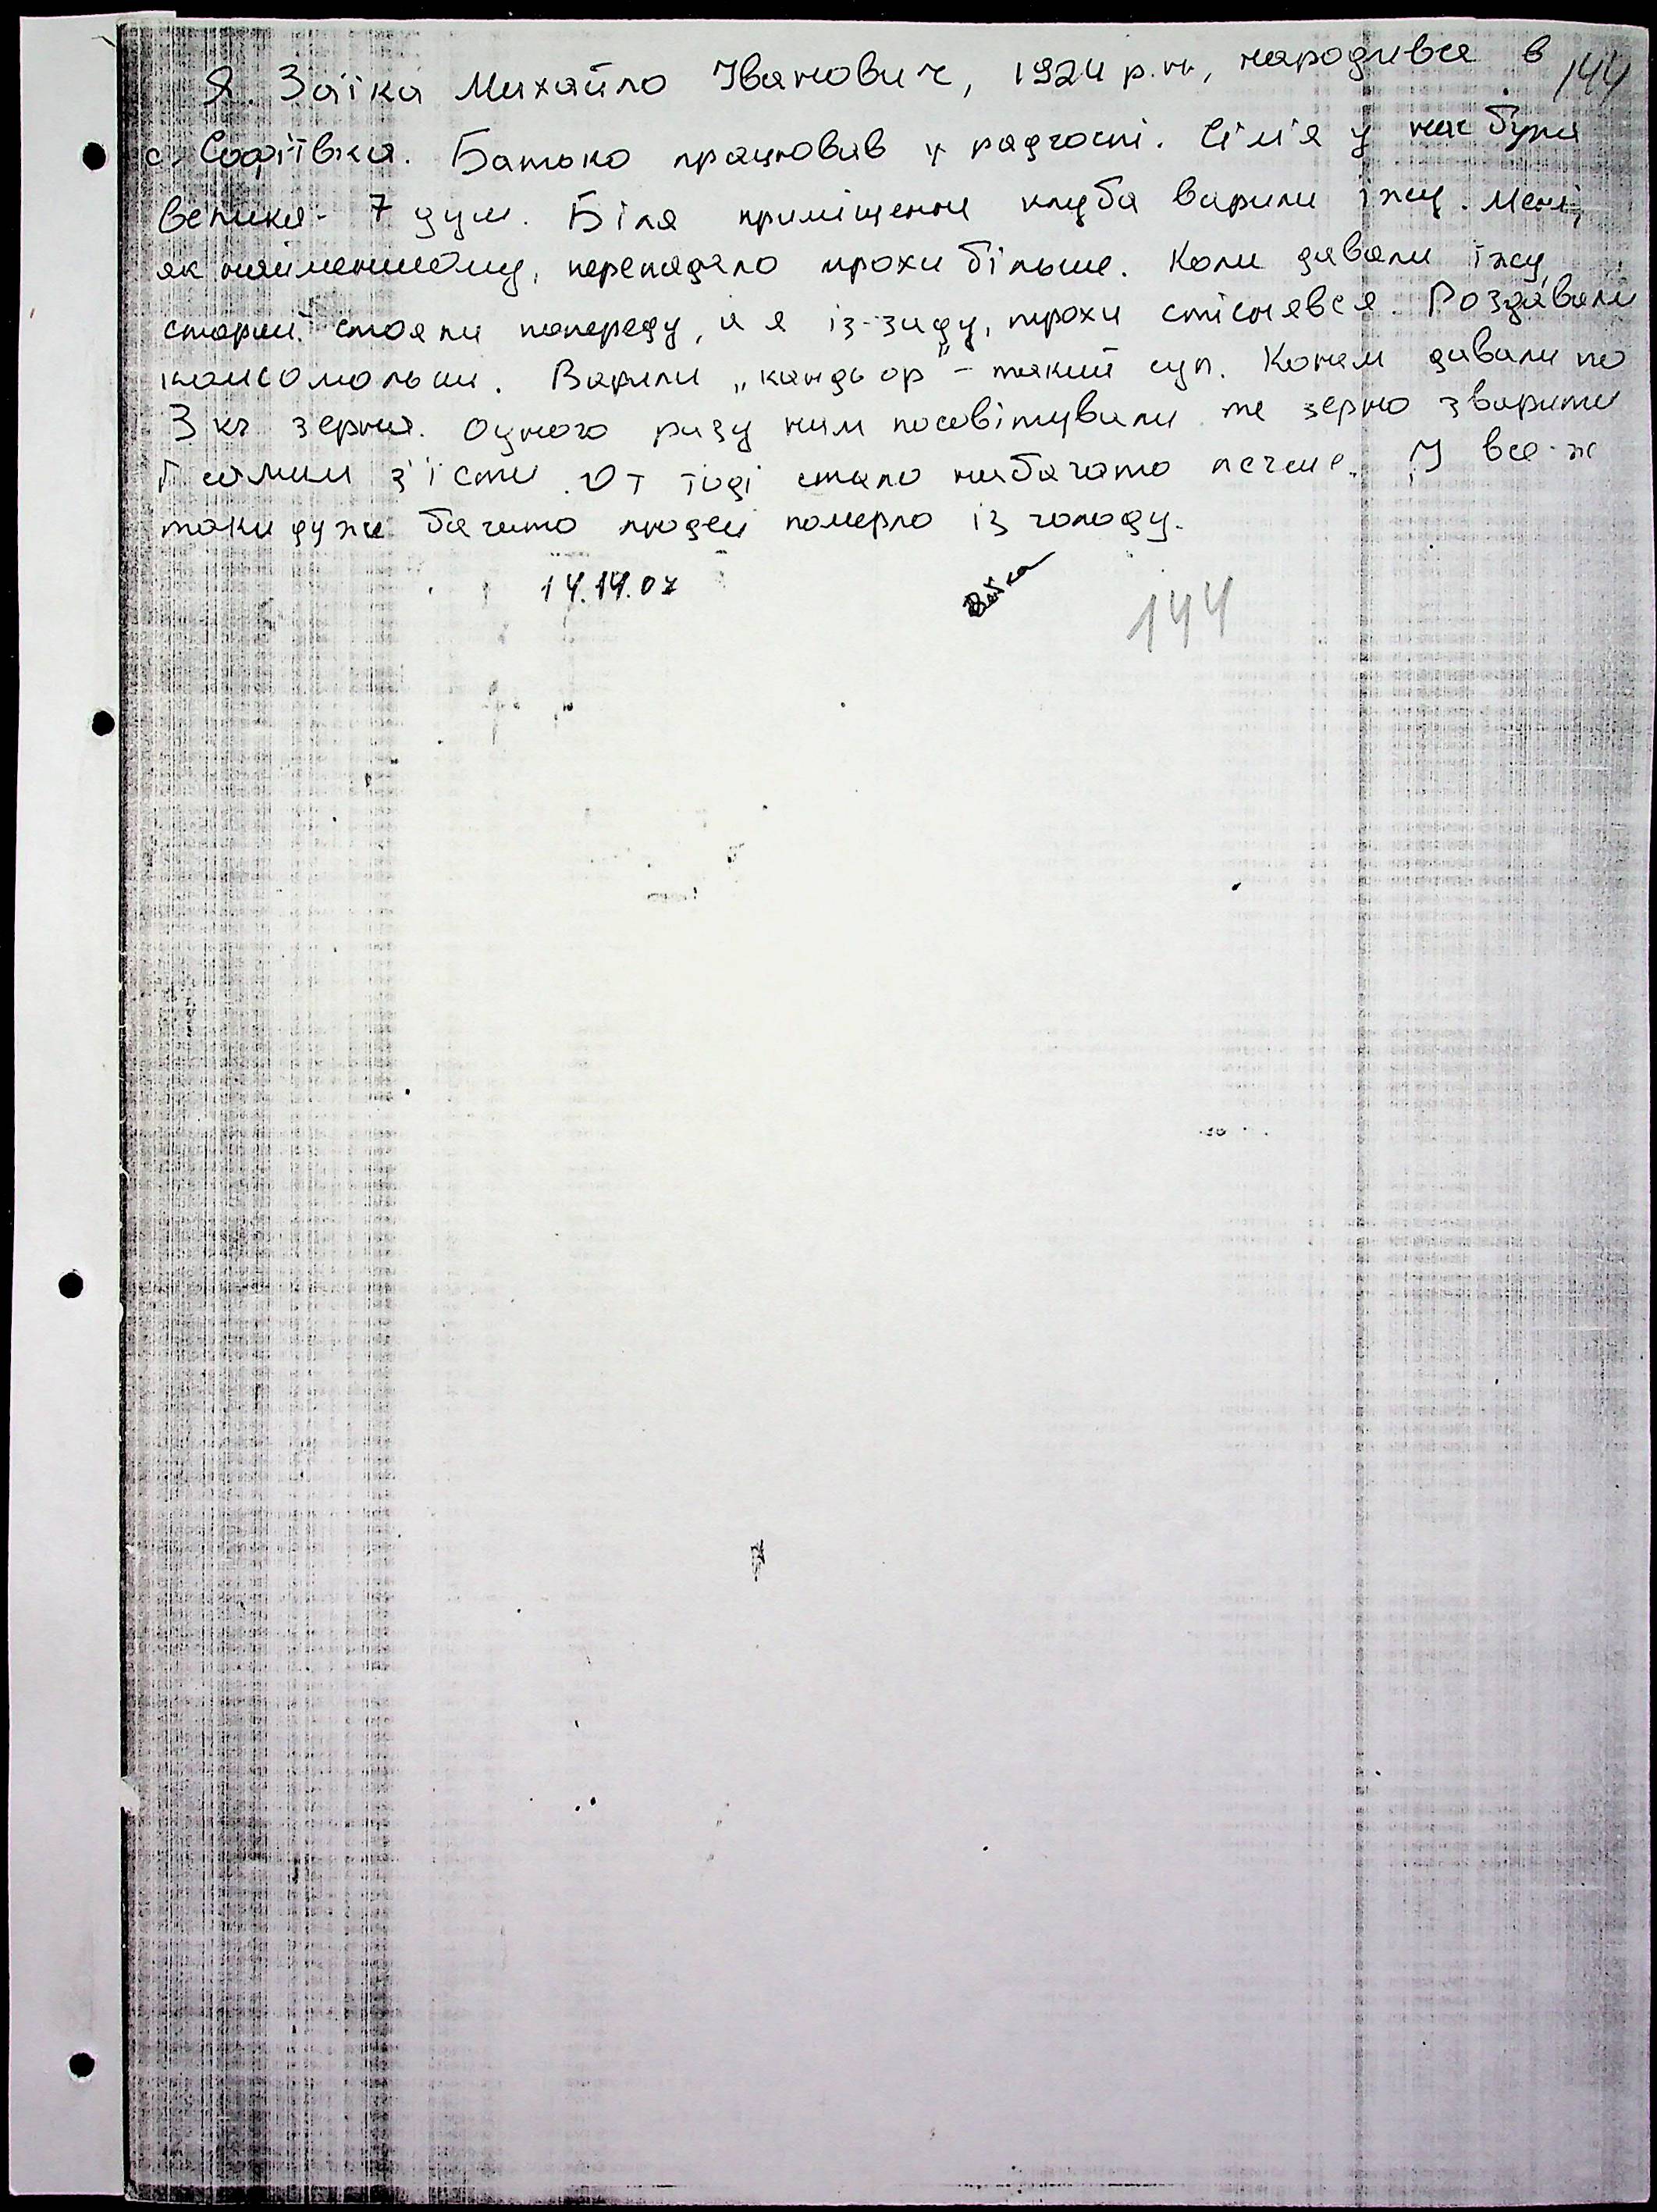 Я. Заїка Михайло Іванович, 1924 р.н., народився в 144
с. Софіївка. Батько працював у радгоспі. Сім'я у нас була
велика - 7 душ. Біля приміщення клуба варили їжу. Мені,
як найменшому, перепадало трохи більше. Коли давали їжу,
старші стояли попереду, а я із-заду, трохи стіснявся. Роздавали
комсомольці. Варили „кандьор" - такий суп. Коням давали по
3 кг зерна. Одного разу нам посовітували те зерно зварити
і самим з'їсти. От тоді стало набагато легше. І все-ж
таки дуже багато людей померло із голоду.
14.14.07 Заїка 144